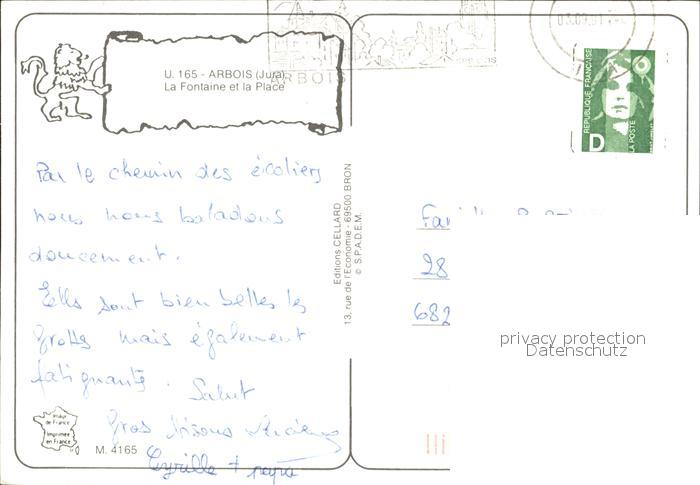 03.09.91
ARBOIS
U. 165 - ARBOIS (Jura)
La Fontaine et la Place
REPUBLIQUE FRANÇAISE
LA POSTE
D
Par le chemin des écoliers
nous nous baladons
doucement.
Elles sont bien belles les
grottes mais également
fatiguante. Salut
Gros bisous
Cyrille + papa
Editions CELLARD
13, rue de l'Economie - 69500 BRON
© S.P.A.D.E.M.
28
682
privacy protection
Datenschutz
Image
de France
Imprimée
en France
M. 4165